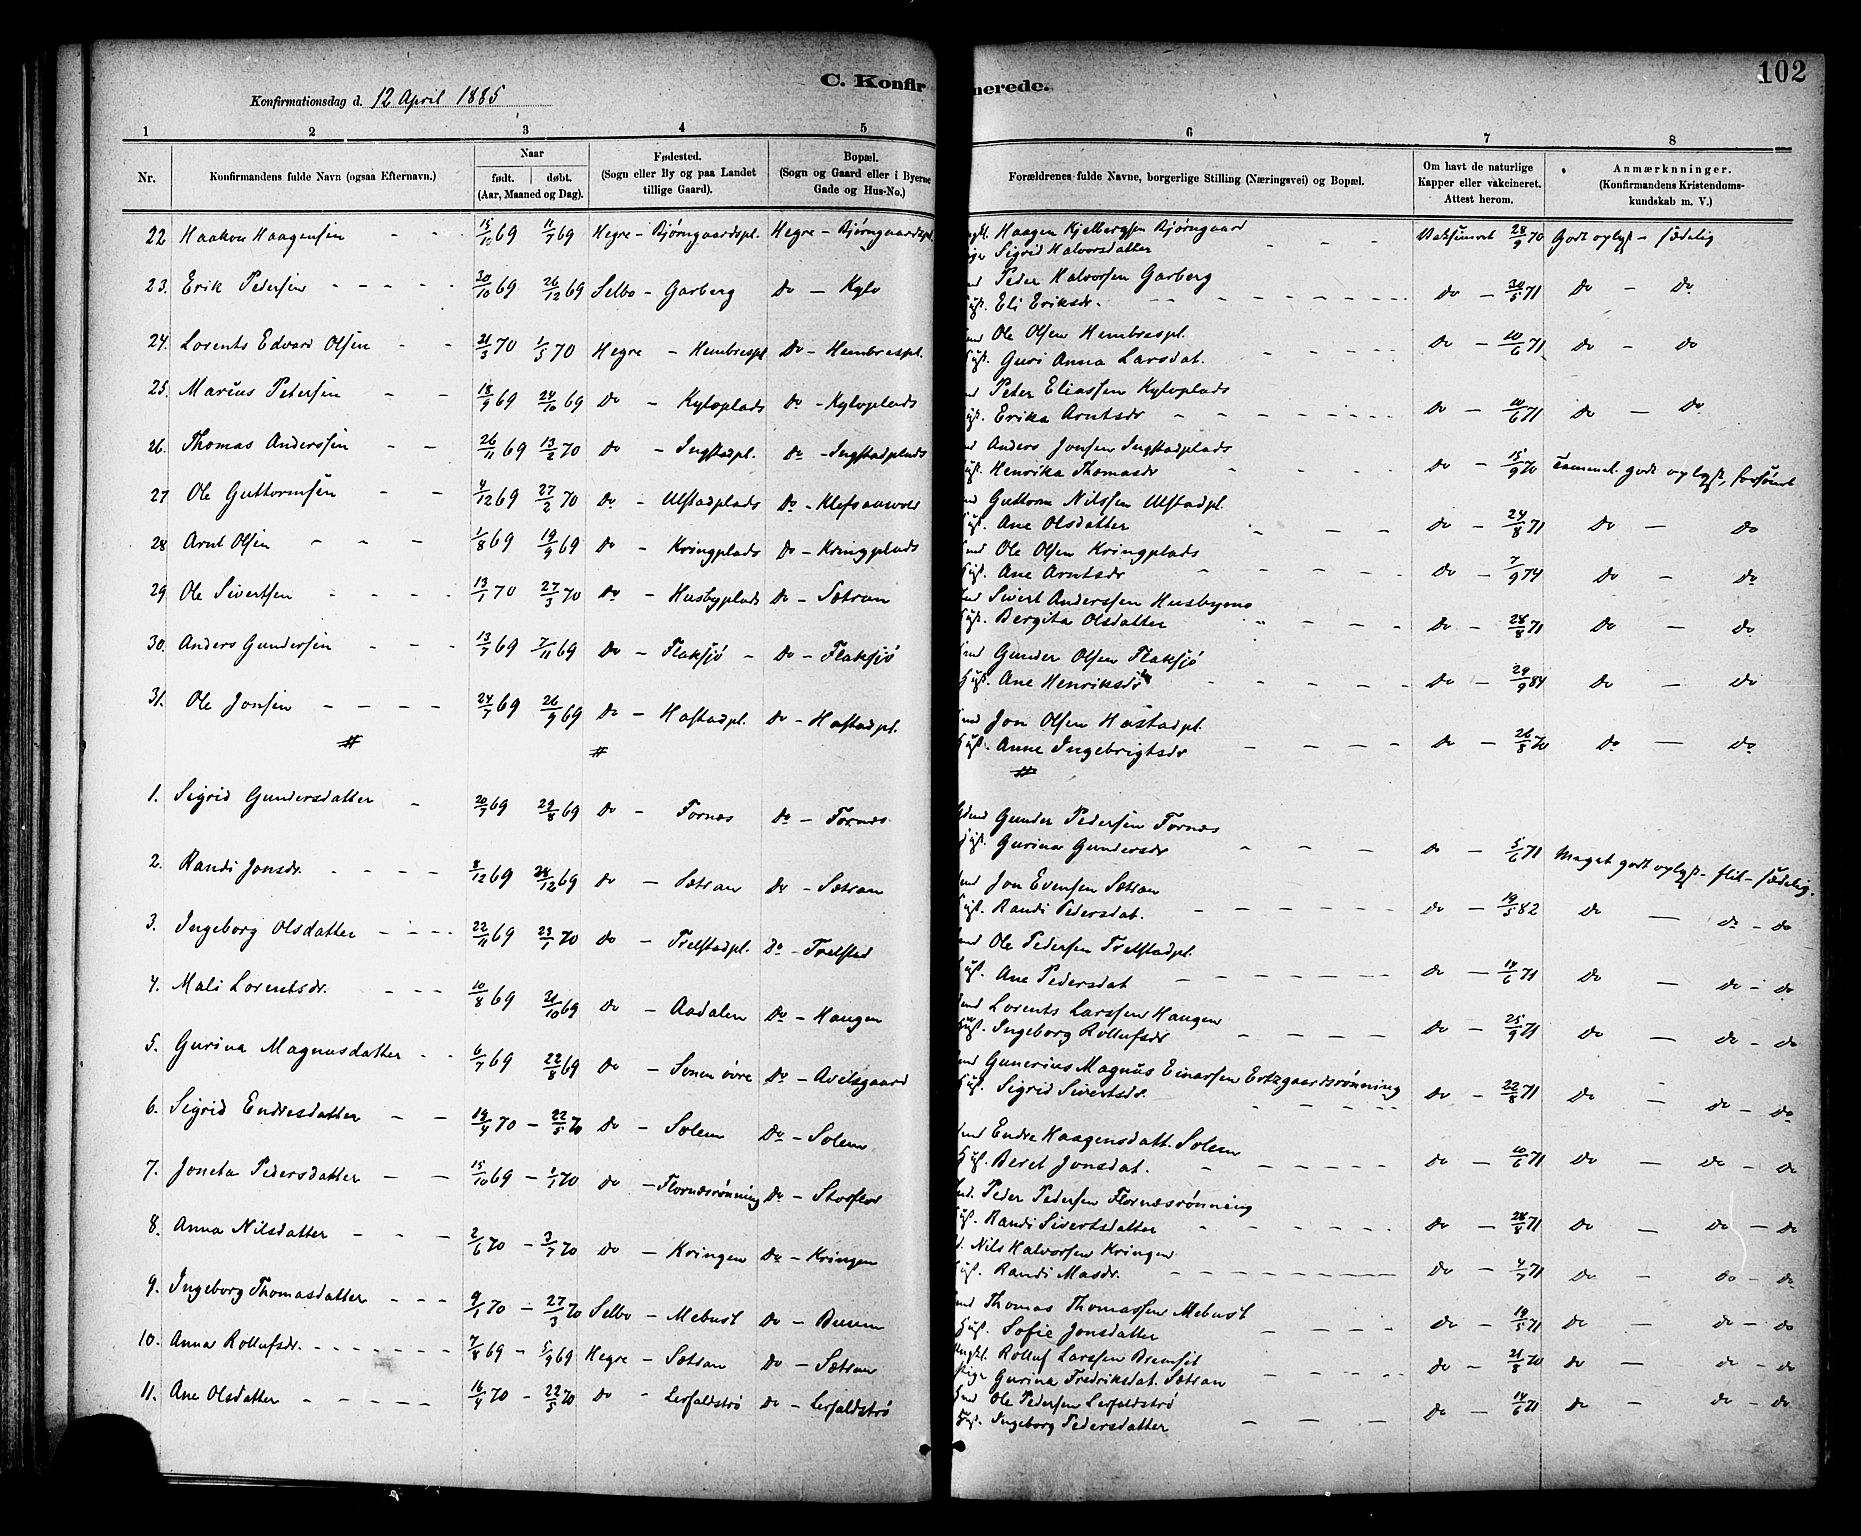 102
C. Konfirmerede.
Konfirmationsdag d. 12 April 1885
1 2 3 4 5 6 7 8
Nr. Konfirmandens fulde Navn (ogsaa Efternavn). Naar født. døbt. (Aar, Maaned og Dag). Fødested. (Sogn eller By og paa Landet tillige Gaard). Bopæl. (Sogn og Gaard eller i Byerne Gade og Hus-No.) Forældrenes fulde Navne, borgerlige Stilling (Næringsvei) og Bopæl. Om havt de naturlige Kapper eller vakcineret. Attest herom. Anmærkninger. (Konfirmandens Kristendomskundskab m. V.)
22 Haakon Haagensen 15/10 69 11/7 69 Hegre - Bjørngaardspl. Hegre - Bjørngaardspl. Haagen Kjelbergsen Bjørngaard Vaksineret 28/9 70 Godt oplyst - sædelig
Sigrid Halvorsdatter
23. Erik Pedersen 30/10 69 26/12 69 Selbo - Garberg Do - Kylo Peder Halvorsen Garberg
Eli Eriksdr. Do - 30/5 71 Do - Do
24. Lorents Edvard Olsen 21/3 70 1/5 70 Hegre - Hembrespl Do - Hembrespl. Ole Olsen Hembrespl.
Guri Anna Larsdat. Do - 10/6 71 Do - Do
25. Marius Petersen 18/9 69 24/10 69 Do - Kyloplads Do - Kyloplads Peter Eliassen Kyloplads
Erika Arntsdr Do - 10/6 71 Do - Do
26. Thomas Anderssen 26/11 69 13/2 70 Do - Ingstadpl. Do - Ingstadplads Anders Jonsen Ingstadplads
Henrika Thomasdr Do - 15/9 70 Temmel. godt oplyst, forsømt
27 Ole Guttormsen 4/12 69 27/2 70 Do - Ulstadplads Do - Klefsaunvold Guttorm Nilssen Ulstadpl.
Ane Olsdatter Do - 24/8 71 Do - Do
28 Arnt Olsen 1/8 69 19/9 69 Do - Kringplads Do - Kringplads Ole Olsen Kringplads
Ane Arntsdr Do - 7/9 74 Do - Do
29 Ole Sivertsen 13/1 70 27/3 70 Do - Husbyplads Do - Sætran Sivert Anderssen Husbymo
Bergita Olsdatter Do - 28/8 71 Do - Do
30. Anders Gundersen 13/7 69 7/11 69 Do - Flaksjø - Do - Flaksjø Gunder Olsen Flaksjø
Ane Henriksdr Do - 29/9 84 Do - Do
31. Ole Jonsen 24/7 69 26/9 69 Do - Hastadpl. Do - Hastadpl. Jon Olsen Hastadpl.
Anne Ingebrigtsdr Do - 26/8 70 Do - Do
# # #
1. Sigrid Gundersdatter 20/7 69 29/8 69 Do - Fornæs Do - Fornæs Gunder Pedersen Fornæs
Gurina Gundersdr Do - 5/6 71 Meget godt oplyst - flit - sædelig.
2. Randi Jonsdr. 8/12 69 28/12 69 Do - Sætran Do - Sætran Jon Evensen Sætran
Randi Pedersdat. Do - 19/5 82 Do - Do - Do
3. Ingeborg Olsdatter 22/11 69 23/1 70 Do - Trelstadpl. Do - Trelstad Ole Pedersen Trelstadpl.
Ane Pedersdat Do - 14/6 71 Do - Do - Do
4. Mali Lorentsdr. 10/8 69 31/10 69 Do - Aadalen Do - Haugen Lorents Larssen Haugen
Ingeborg Rollufsdr Do - 25/9 71 Do - Do - Do
5. Gurina Magnusdatter 6/7 69 22/8 69 Do - Sonen øvre Do - Avelsgaard Gunerius Magnus Einarsen Ertzgaardsrønning
Sigrid Sivertsdr. Do - 22/8 71 Do - Do - Do
6. Sigrid Endresdatter 19/4 70 - 22/5 70 Do - Solem Do - Solem Endre Haagensdatt. Solem
Beret Jonsdat. Do - 10/6 71 Do - Do - Do
7. Joneta Pedersdatter 15/10 69 - 1/1 70 Do - Flornæsrønning Do - Storflor Peder Pedersen Flornæsrønning
Randi Sivertsdatter Do - 28/8 71 Do - Do - Do
8. Anna Nilsdatter 2/6 70 - 3/7 70 Do - Kringen Do - Kringen Nils Halvorsen Kringen
Randi Masdr. Do - 4/7 71 Do - Do - Do
9. Ingeborg Thomasdatter 9/1 70 - 27/3 70 Selbo - Mebust Do - Buum Thomas Thomassen Mebust
Sofie Jonsdatter Do - 19/5 71 Do - Do - Do
10. Anna Rollufsdr. 7/8 69 - 5/9 69 Hegre - Sætran Do - Sætran Rolluf Larssen Bremset
Gurina Fredriksdat. Sætran Do - 21/8 70 Do - Do - Do
11. Ane Olsdatter 16/4 70 - 22/5 70 Do - Lerfaldstrø Do - Lerfaldstrø Ole Pedersen Lerfaldstrø
Ingeborg Pedersdatter Do - 14/6 71 Do - Do - Do